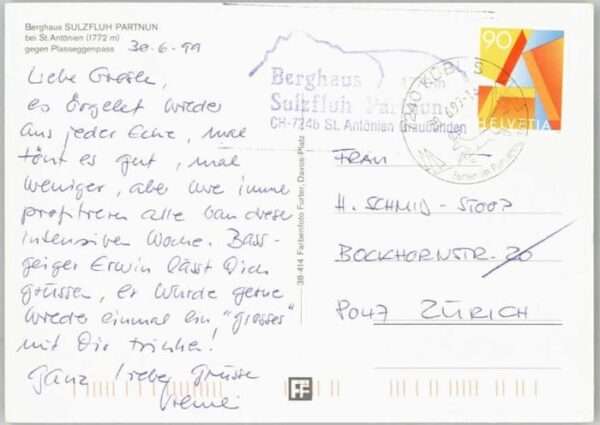 Berghaus SULZFLUH PARTNUN
bei St. Antönien (1772 m)
gegen Plasseggenpass
30-6-99
Liebe
es Örgelet wieder
aus jeder Ecke, mal
tönt es gut, mal
weniger, aber wie immer
profitieren alle von dieser
intensiven Woche. Bass-
geiger Erwin lässt Dich
grüssen, er würde gerne
wieder einmal ein "grosses"
mit Dir trinke!
Ganz liebe Grüsse
Vreni
38-414 Farbenfoto Furter, Davos-Platz
Berghaus m
Sulzfluh Partnun
CH-7246 St. Antönien Graubünden
7240 KÜBLIS
90
HELVETIA
FRAU
H. SCHMID-STOOP
BOCKHORNSTR. 20
8047 ZÜRICH
FF